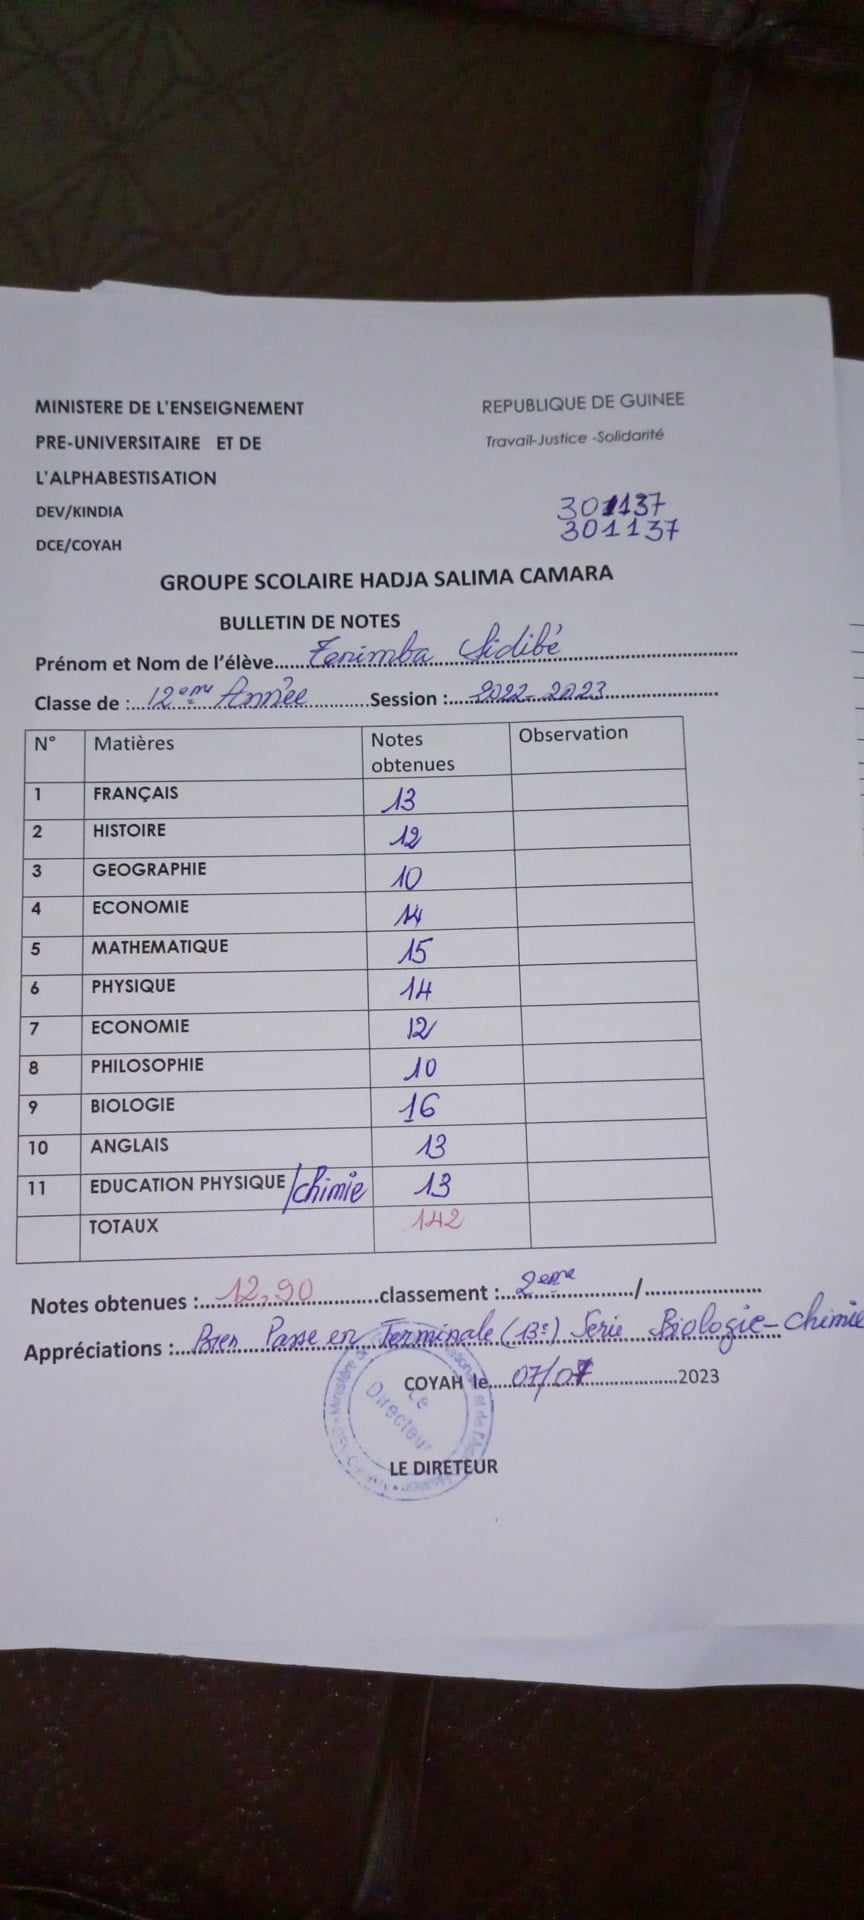 MINISTERE DE L'ENSEIGNEMENT REPUBLIQUE DE GUINEE
PRE-UNIVERSITAIRE ET DE Travail-Justice -Solidarité
L'ALPHABESTISATION
DEV/KINDIA 301137
DCE/COYAH 301137
GROUPE SCOLAIRE HADJA SALIMA CAMARA
BULLETIN DE NOTES
Prénom et Nom de l'élève....Tenimba Sidibé
Classe de :...12ème Année...Session :...2022-2023
N° Matières Notes obtenues Observation
1 FRANÇAIS 13
2 HISTOIRE 12
3 GEOGRAPHIE 10
4 ECONOMIE 14
5 MATHEMATIQUE 15
6 PHYSIQUE 14
7 ECONOMIE 12
8 PHILOSOPHIE 10
9 BIOLOGIE 16
10 ANGLAIS 13
11 EDUCATION PHYSIQUE/chimie 13
TOTAUX 142
Notes obtenues :...12,90...classement :...2eme.../...
Appréciations :...Bien Passe en Terminale (13e) Serie Biologie-Chimie
COYAH le...07/07...2023
Le Directeur
LE DIRETEUR